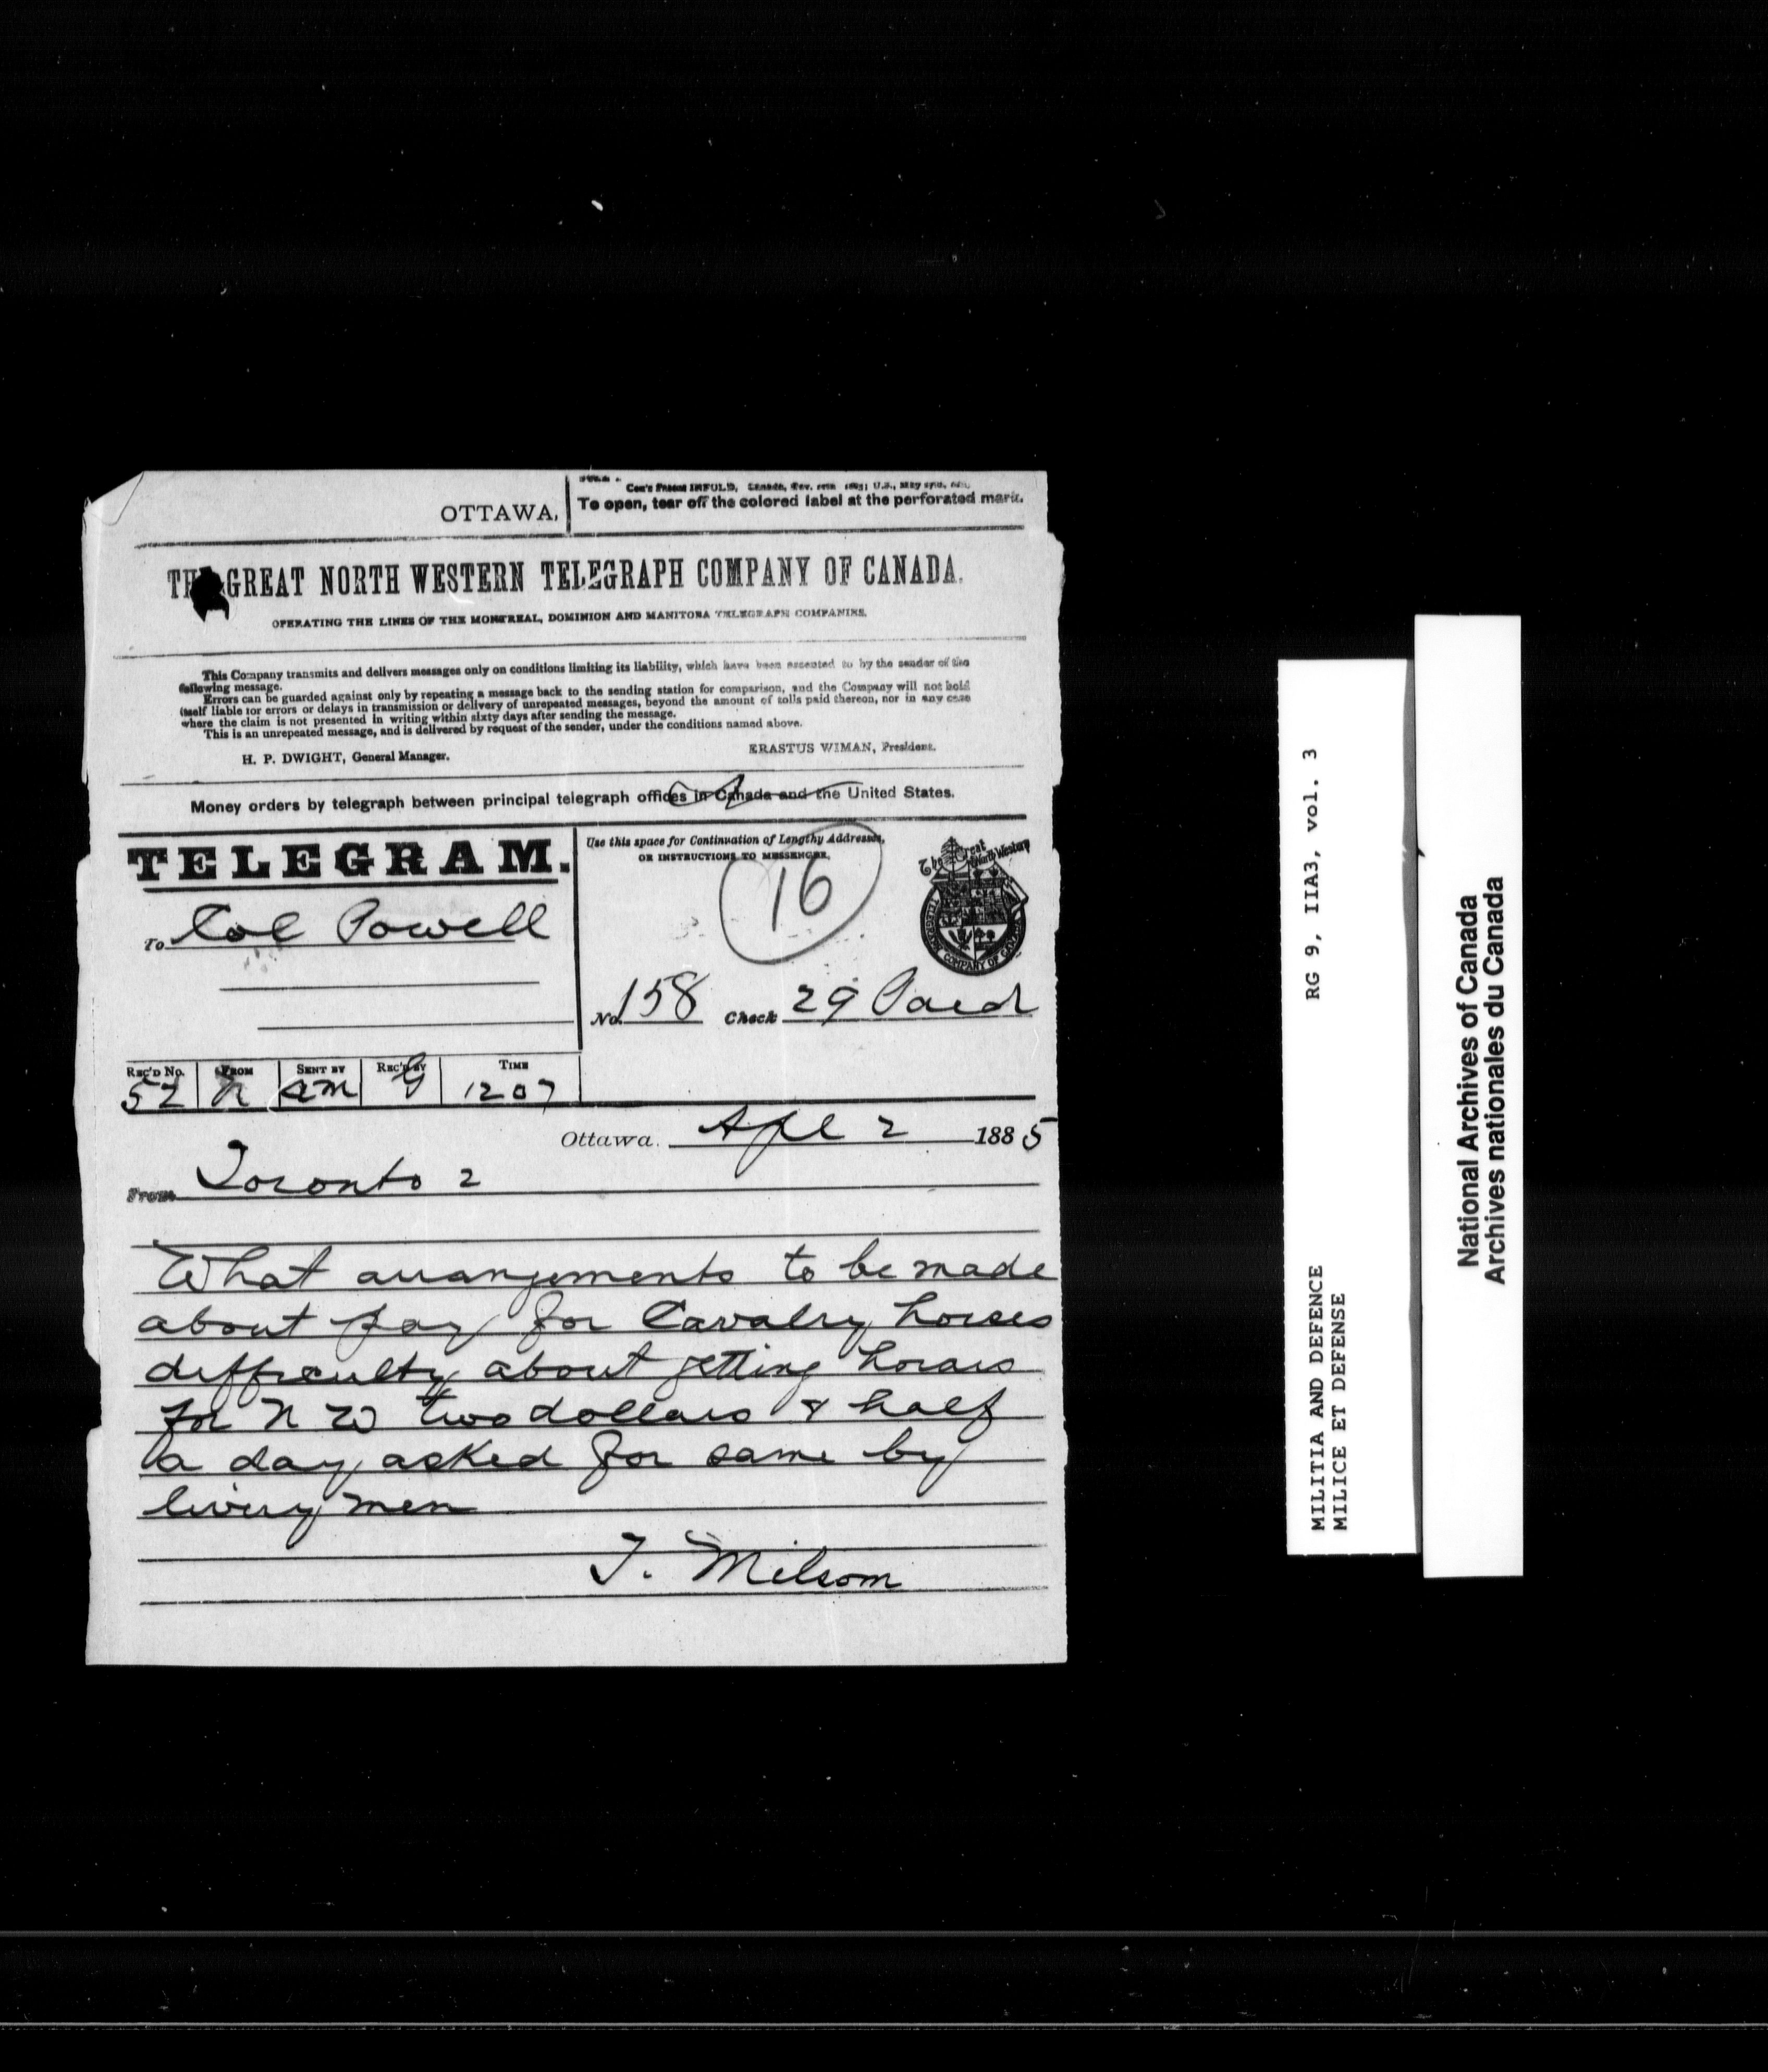 OTTAWA,
To open, tear off the colored label at the perforated mark.
THE GREAT NORTH WESTERN TELEGRAPH COMPANY OF CANADA.
OPERATING THE LINES OF THE MONTREAL, DOMINION AND MANITOBA TELEGRAPH COMPANIES.
This Company transmits and delivers messages only on conditions limiting its liability, which have been assented to by the sender of the
following message.
Errors can be guarded against only by repeating a message back to the sending station for comparison, and the Company will not hold
itself liable for errors or delays in transmission or delivery of unrepeated messages, beyond the amount of tolls paid thereon, nor in any case
where the claim is not presented in writing within sixty days after sending the message.
This is an unrepeated message, and is delivered by request of the sender, under the conditions named above.
H. P. DWIGHT, General Manager.
ERASTUS WIMAN, President.
Money orders by telegraph between principal telegraph offices in Canada and the United States.
TELEGRAM.
Use this space for Continuation of Lengthy Addresses,
OR INSTRUCTIONS TO MESSENGER.
16
The Great North Western
TELEGRAPH COMPANY OF CANADA
To Col Powell
No. 158 Check 29 Paid
REC'D NO. FROM SENT BY REC'D BY TIME
52 N am G 1207
Ottawa. Apl 2 1885
From Toronto 2
What arrangements to be made
about pay for Cavalry horses
difficulty about getting horses
for N W two dollars & half
a day asked for same by
livery men
T. Milsom
RG 9, IIA3, vol. 3
MILITIA AND DEFENCE
MILICE ET DEFENSE
National Archives of Canada
Archives nationales du Canada